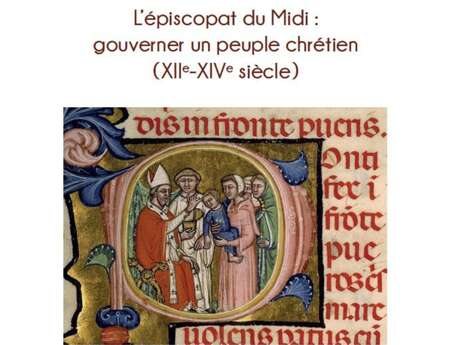 L'épiscopat du Midi :
gouverner un peuple chrétien
(XIIᵉ-XIVᵉ siècle)
dis in fronte pueris.
Onti
fex i
frōte
pue
ros cs
mare
uolens paratus